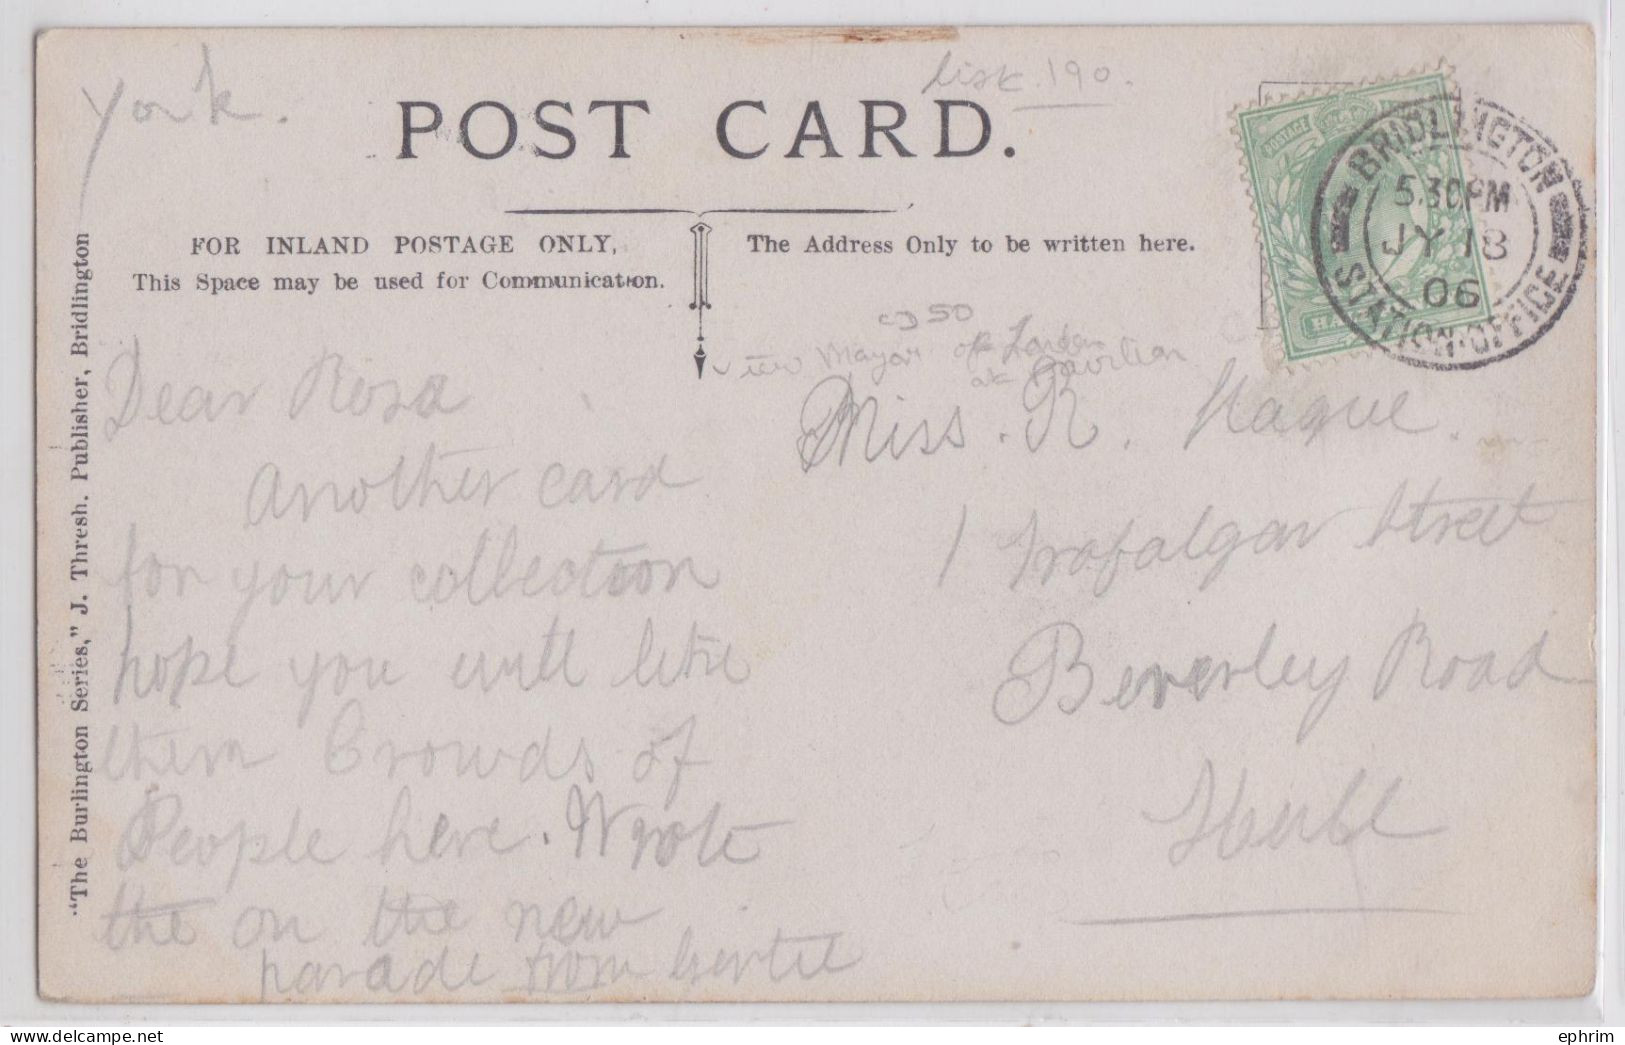 York.
list 190.
POST CARD.
FOR INLAND POSTAGE ONLY,
This Space may be used for Communication.
The Address Only to be written here.
POSTAGE
BRIDLINGTON
5.30PM
JY 18
06
STATION·OFFICE
"The Burlington Series," J. Thresh. Publisher, Bridlington
50
view Mayor of London
at Pavilion
Dear Rosa
another card
for your collection
hope you will like
them Crowds of
People here. Wrote
the on the new
parade from Gertie
Miss. R. Hague.
1 Trafalgar Street
Beverley Road
Hull
ephrim